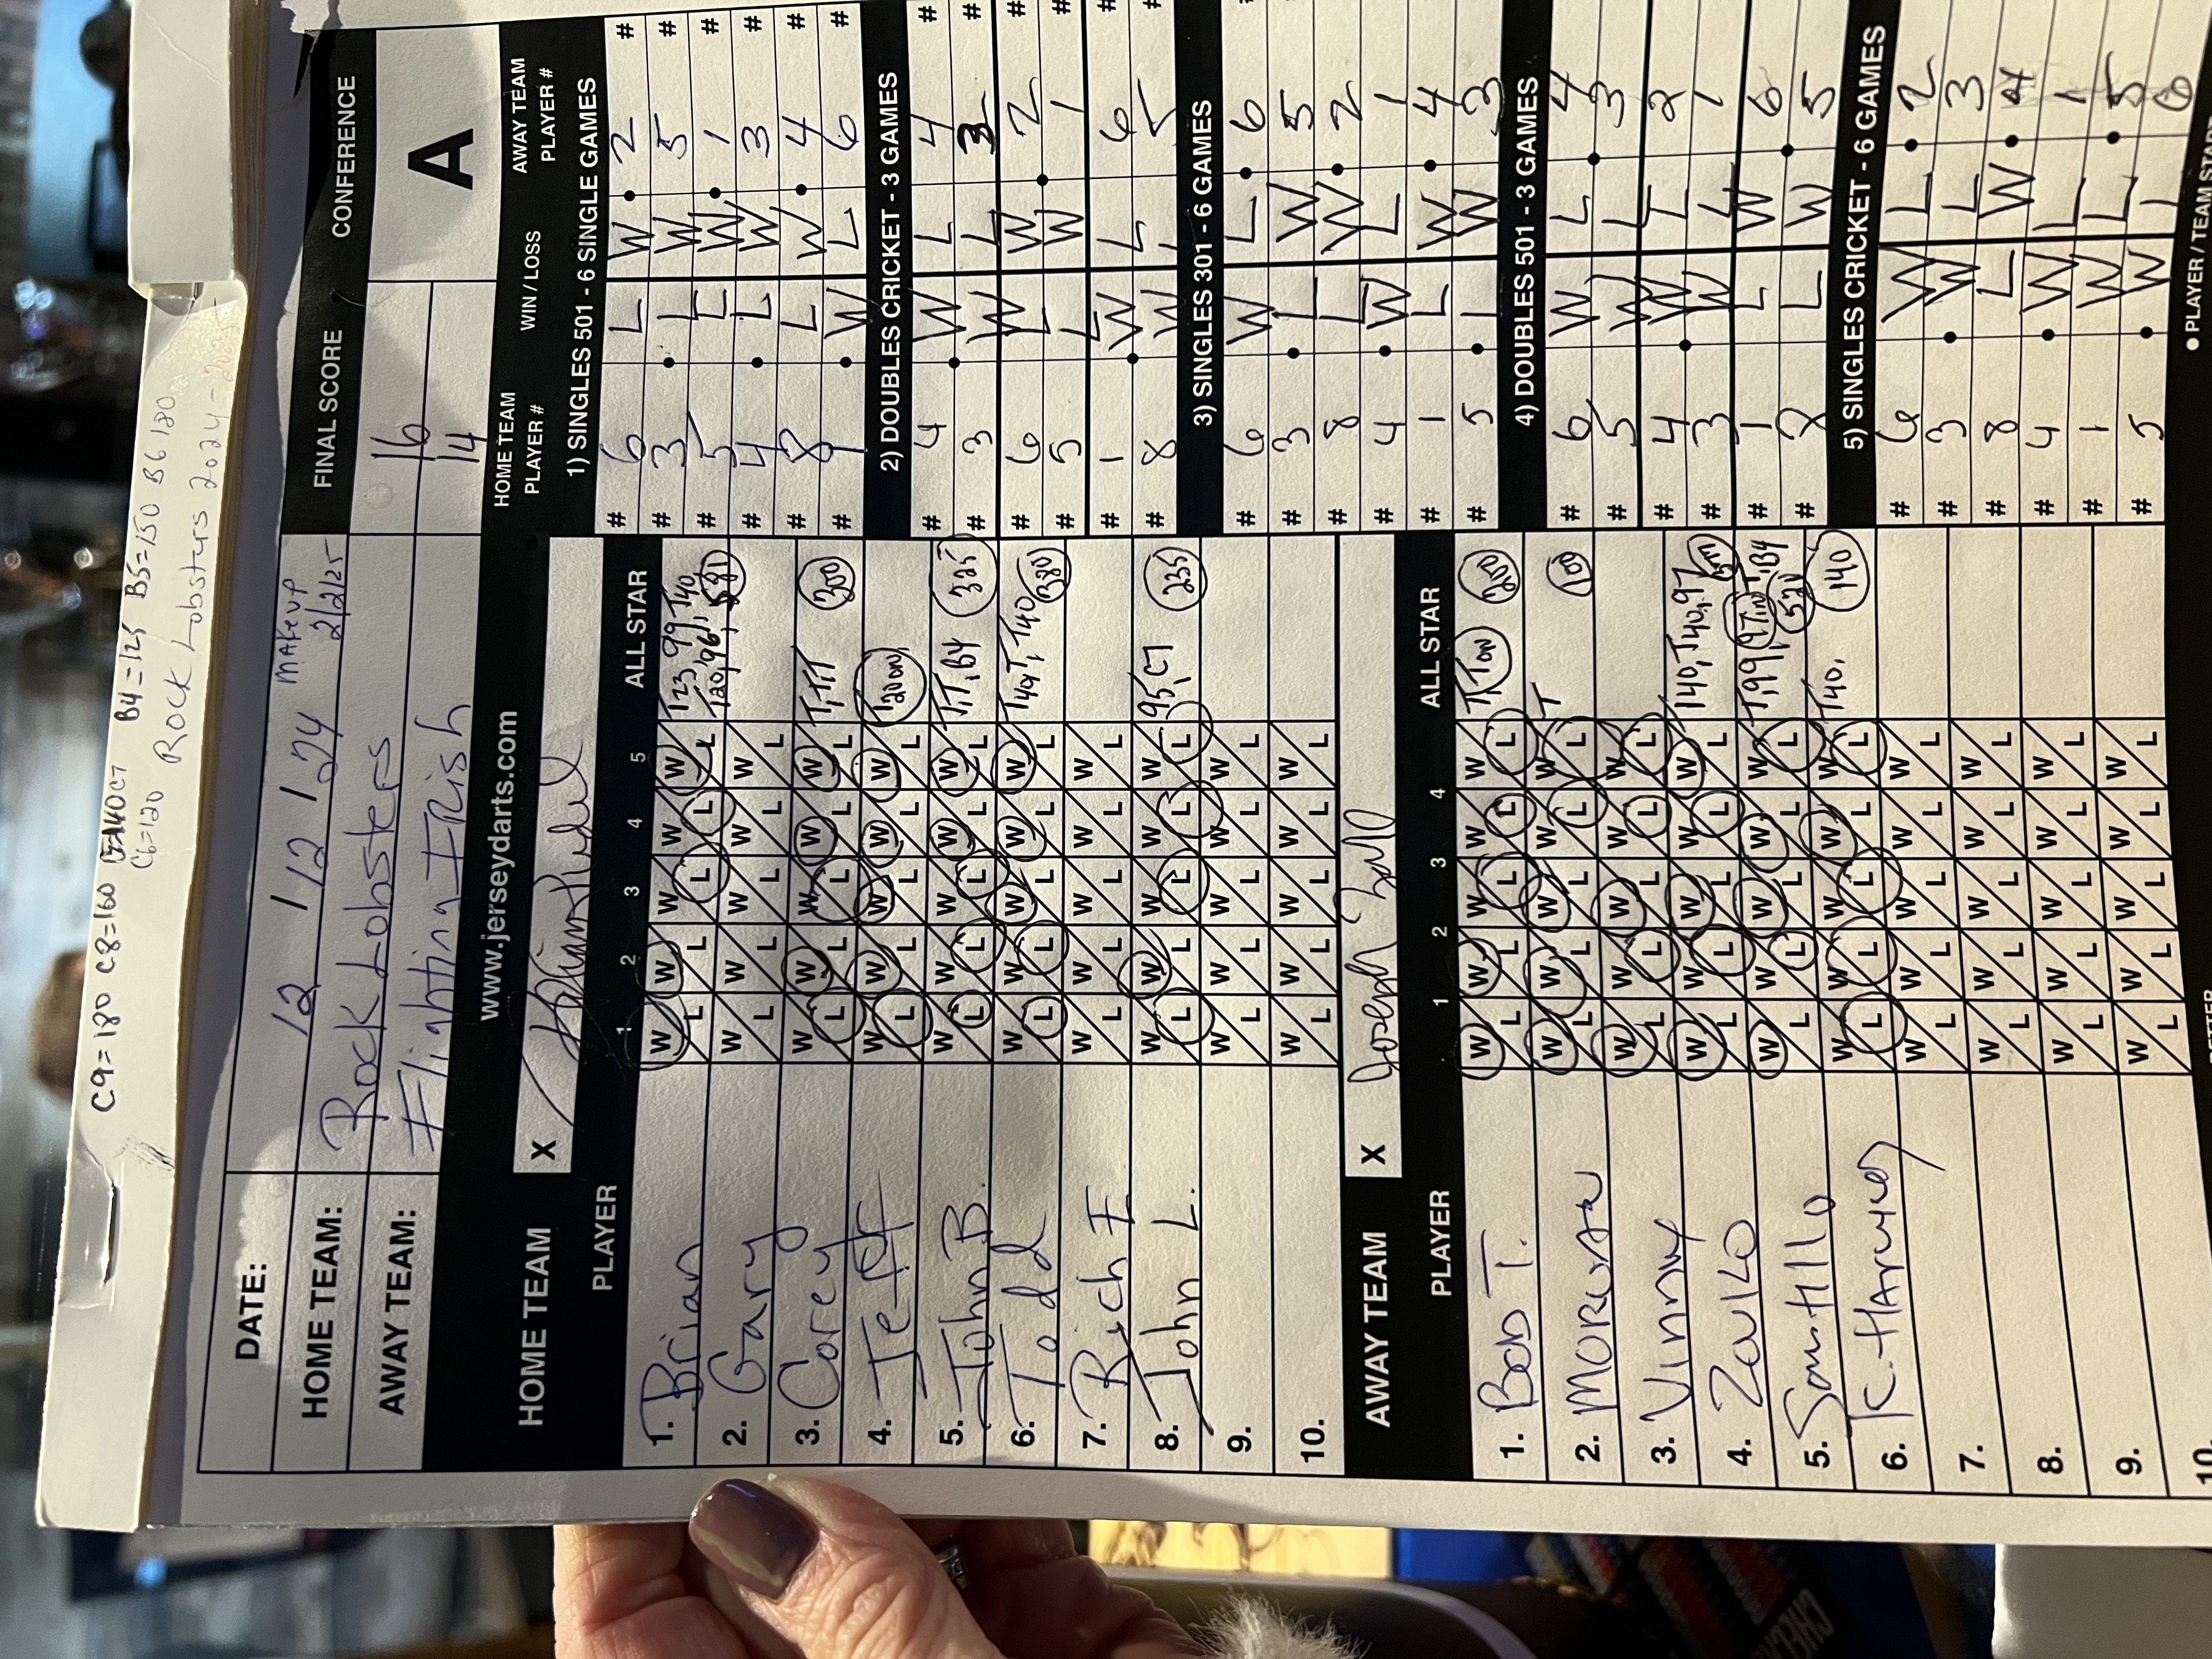 C9=180 C8=160 C7=140 B4=125 B5=150 B6 180
C6=120 Rock Lobsters 2024-2025
DATE: 12 / 12 / 24 MAKEUP 2/2/25
HOME TEAM: Rock Lobsters
AWAY TEAM: Flighting IRish
FINAL SCORE CONFERENCE
16 A
14
www.jerseydarts.com
HOME TEAM X
PLAYER 1 2 3 4 5 ALL STAR
1. Brian W/L W/L W/L W/L W/L T23, 99, T40
T20, 96,
2. Gary W/L W/L W/L W/L W/L
3. Corey W/L W/L W/L W/L W/L T,T,T 300
4. Jeff W/L W/L W/L W/L W/L
5. John B. W/L W/L W/L W/L W/L T,T,B4 325
6. Todd W/L W/L W/L W/L W/L T40,T,T40 380
7. Rich F W/L W/L W/L W/L W/L
8. John L. W/L W/L W/L W/L W/L 95,C7 235
9. W/L W/L W/L W/L W/L
10. W/L W/L W/L W/L W/L
AWAY TEAM X
PLAYER 1 2 3 4 ALL STAR
1. Bob T. W/L W/L W/L W/L W/L T,TON 200
2. W/L W/L W/L W/L W/L T 100
3. Vinny W/L W/L W/L W/L W/L
4. Zullo W/L W/L W/L W/L W/L T40,T40,97
5. Santillo W/L W/L W/L W/L W/L T,99,97IN,T,B4 521
6. K. Harvey W/L W/L W/L W/L W/L T40, 140
7. W/L W/L W/L W/L W/L
8. W/L W/L W/L W/L W/L
9. W/L W/L W/L W/L W/L
10.
HOME TEAM PLAYER # WIN / LOSS AWAY TEAM PLAYER #
1) SINGLES 501 - 6 SINGLE GAMES
# 6 L W 2 #
# 3 L W 5 #
# 5 L W 1 #
# 4 L W 3 #
# 8 L W 4 #
# 1 W L 6 #
2) DOUBLES CRICKET - 3 GAMES
# 4 W L 4 #
# 3 W L 3 #
# 6 L W 2 #
# 5 L W 1 #
# 1 W L 6 #
# 8 W L 5 #
3) SINGLES 301 - 6 GAMES
# 6 W L 6 #
# 3 L W 5
# 8 L W 2
# 4 W L 1
# 1 L W 4
# 5 L W 3
4) DOUBLES 501 - 3 GAMES
# 6 W L 4
# 5 W L 3
# 4 W L 2
# 3 W L 1
# 1 L W 6
# 8 L W 5
5) SINGLES CRICKET - 6 GAMES
# 6 W L 2
# 3 W L 3
# 8 L W 4
# 4 W L 1
# 1 W L 5
# 5 W L 6
● PLAYER / TEAM START